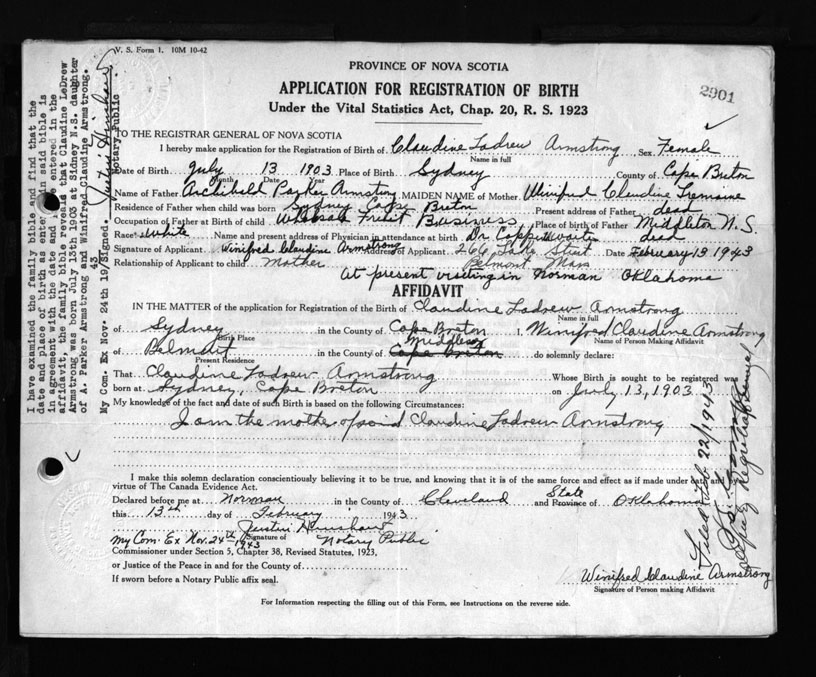 V. S. Form 1. 10M 10-42
PROVINCE OF NOVA SCOTIA
2901
APPLICATION FOR REGISTRATION OF BIRTH
Under the Vital Statistics Act, Chap. 20, R. S. 1923
TO THE REGISTRAR GENERAL OF NOVA SCOTIA
I hereby make application for the Registration of Birth of Claudine Ladrew Armstrong Sex Female
Name in full
Date of Birth July 13 1903 Place of Birth Sydney County of Cape Breton
Month Date Year
Name of Father Archibald Parker Armstrong MAIDEN NAME of Mother Winifred Claudine Tremaine
Residence of Father when child was born Sydney Cape Breton Present address of Father dead
Occupation of Father at Birth of child Wholesale Fruit Business Place of birth of Father Middleton N. S.
Race White Name and present address of Physician in attendance at birth Dr dead
Signature of Applicant Winifred Claudine Armstrong Address of Applicant 266 Lake Street Date February 13 1943
Relationship of Applicant to child Mother Belmont Mass
At present visiting in Norman Oklahoma
AFFIDAVIT
IN THE MATTER of the application for Registration of the Birth of Claudine Ladrew Armstrong
Name in full
of Sydney in the County of Cape Breton I, Winifred Claudine Armstrong
Birth Place Name of Person Making Affidavit
Middlesex
of Belmont in the County of Cape Breton do solemnly declare:
Present Residence
That Claudine Ladrew Armstrong Whose Birth is sought to be registered was
born at Sydney, Cape Breton on July 13, 1903
My knowledge of the fact and date of such Birth is based on the following Circumstances:
I am the mother of said Claudine Ladrew Armstrong
I make this solemn declaration conscientiously believing it to be true, and knowing that it is of the same force and effect as if made under oath and by
virtue of The Canada Evidence Act.
State
Declared before me at Norman in the County of Cleveland and Province of Oklahoma
this 13th day of February 1943
Justin Hinshaw
My Com. Ex Nov. 24th 1943 Signature of Notary Public
Commissioner under Section 5, Chapter 38, Revised Statutes, 1923,
or Justice of the Peace in and for the County of
If sworn before a Notary Public affix seal.
Winifred Claudine Armstrong
Signature of Person making Affidavit
For Information respecting the filling out of this Form, see Instructions on the reverse side.
I have examined the family bible and find that the
date and place of birth as entered in said bible is
in agreement with the date and entered in the
affidavit, the family bible reveals that Claudine LeDrew
Armstrong was born July 13th 1903 at Sidney N.S. daughter
of A. Parker Armstrong and Winifred Claudine Armstrong.
My Com. Ex Nov. 24th 1943 Signed. Justin Hinshaw
Notary Public.
Filed Feb 22/1943
Deputy Registrar General